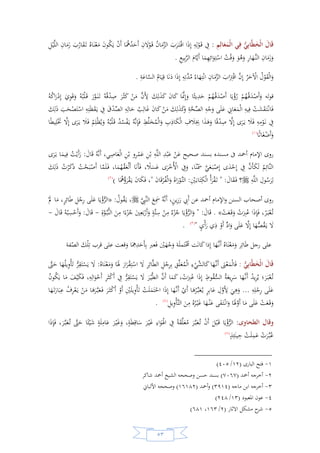 قَالَ الْخَطَّابِيُّ فِي الْمَعَالِمِ : فِي قَوْلِهِ إِذَا اقْتَرَبَ الزَّمَانُ قَوْلَانِ أَحَدُهُمَا أَنْ يَكُونَ مَعْنَاهُ تَقَارُبَ زَمَانِ اللَّيْلِ
وَزَمَانِ النَّهَارِ وَهُوَ وَقْتُ اسْتِوَائِهِمَا أَيَّامَ الرَّبِيعِ.
وَالْقَوْلُ الْآخَرُ إِنَّ اقْتِرَابَ الزَّمَانِ انْتِهَاءُ مُدَّتِهِ إِذَا دَنَا قِيَامُ السَّاعَةِ.
قوله وَأَصْدَقُهُمْ رُؤْيَا أَصْدَقُهُمْ حَدِيثًا وَإِنَّمَا كَانَ كَذَلِكَ لِأَنَّ مَنْ كَثُرَ صِدْقُهُ تَنَوَّرَ قَلْبُهُ وَقَوِيَ إِدْرَاكُهُ
فَانْتَقَشَتْ فِيهِ الْمَعَانِي عَلَى وَجْهِ الصِّحَّةِ وَكَذَلِكَ مَنْ كَانَ غَالِبُ حَالِهِ الصِّدْقَ فِي يَقَظَتِهِ اسْتَصْحَبَ ذَلِكَ
فِي نَوْمِهِ فَلَا يَرَى إِلَّا صِدْقًا وَهَذَا بِخِلَافِ الْكَاذِبِ وَالْمُخَلِّطِ فَإِنَّهُ يَفْسُدُ قَلْبُهُ وَيُظْلِمُ فَلَا يَرَى إِلَّا تَخْلِيطًا
وَأَضْغَاثًا
روى الإمام أحمد فى مسنده بسند صحيح عَنْ عَبْدِ اللَّهِ بْنِ عَمْرِو بْنِ الْعَاصِي، أَنَّهُ قَالَ: رَأَيْتُ فِيمَا يَرَى
النَّائِمُ لَكَأَنَّ فِي إِحْدَى إِصْبَعَيَّ سَمْنًا، وَفِي الْأُخْرَى عَسَلًا، فَأَنَا أَلْعَقُهُمَا، فَلَمَّا أَصْبَحْتُ ذَكَرْتُ ذَلِكَ
لِرَسُولِ اللَّهِ ﷺ؟ فَقَالَ: " تَقْرَأُ الْكِتَابَيْنِ: التَّوْرَاةَ، وَالْفُرْقَانَ "، فَكَانَ يَقْرَؤُهُمَا
روى أصحاب السنن والإمام أحمد عن أَبِي رَزِينٍ، أَنَّهُ سَمِعَ النَّبِيَّ ﷺ، يَقُولُ: «الرُّؤْيَا عَلَى رِجْلِ طَائِرٍ، مَا لَمْ
تُعَبَّرْ، فَإِذَا عُبِّرَتْ وَقَعَتْ» . قَالَ: " وَالرُّؤْيَا جُزْءٌ مِنْ سِتَّةٍ وَأَرْبَعِينَ جُزْءًا مِنَ النُّبُوَّةِ - قَالَ: وَأَحْسِبُهُ قَالَ: -
لَا يَقُصُّهَا إِلَّا عَلَى وَادٍّ أَوْ ذِي رَأْيٍ
على رجل طائر وَمَعْنَاهُ أَنَّهَا إِذَا كَانَتْ مُحْتَمِلَةً وَجْهَيْنِ فَعُبِرَ بِأَحَدِهِمَا وقعت على قرب تِلْكَ الصفة
قَالَ الْخَطَّابِيُّ : أَنَّهَا كَالشَّيْءِ الْمُعَلَّقِ بِرِجْلِ الطَّائِرِ لَا اسْتِقْرَارَ لَهَا. فَالْمَعْنَى أَنَّ الرُّؤْيَا لَا يَسْتَقِرُّ تَأْوِيلُهَا حَتَّى
تُعَبَّرَ يُرِيدُ أَنَّهَا سَرِيعَةُ السُّقُوطِ إِذَا عُبِّرَتْ، كَمَا أَنَّ الطَّيْرَ لَا يَسْتَقِرُّ فِي أَكْثَرِ أَحْوَالِهِ، فَكَيْفَ مَا يَكُونُ
عَلَى رِجْلِهِ ... وَهِيَ لِأَوَّلِ عَابِرٍ يُعَبِّرُهَا أَيْ أَنَّهَا إِذَا احْتَمَلَتْ تَأْوِيلَيْنِ أَوْ أَكْثَرَ فَعَبَّرَهَا مَنْ يَعْرِفُ عِبَارَتَهَا
وَقَعَتْ عَلَى مَا أَوَّلَهَا وَانْتَفَى عَنْهَا غَيْرُهُ مِنَ التَّأْوِيلِ
وقَالَ الطحاوى: الرُّؤْيَا قَبْلَ أَنْ تُعَبَّرَ مُعَلَّقَةٌ فِي الْهَوَاءِ غَيْرَ سَاقِطَةٍ، وَغَيْرَ عَامِلَةٍ شَيْئًا حَتَّى تُعَبَّرَ، فَإِذَا
عُبِّرَتْ عَمِلَتْ حِينَئِذٍ
١- فتح البارى (١٢/ ٤٠٥)
٢- أخرجه أحمد (٧٠٦٧) بسند حسن وصححه الشيخ أحمد شاكر
٣- أخرجه ابن ماجه (٣٩١٤) وأحمد (١٦١٨٢) وصححه الألبانى
٤- عون المعبود (١٣/ ٢٤٨)
٥- شرح مشكل الاثار (٢/ ١٦٣، ٦٨١)
٥٣